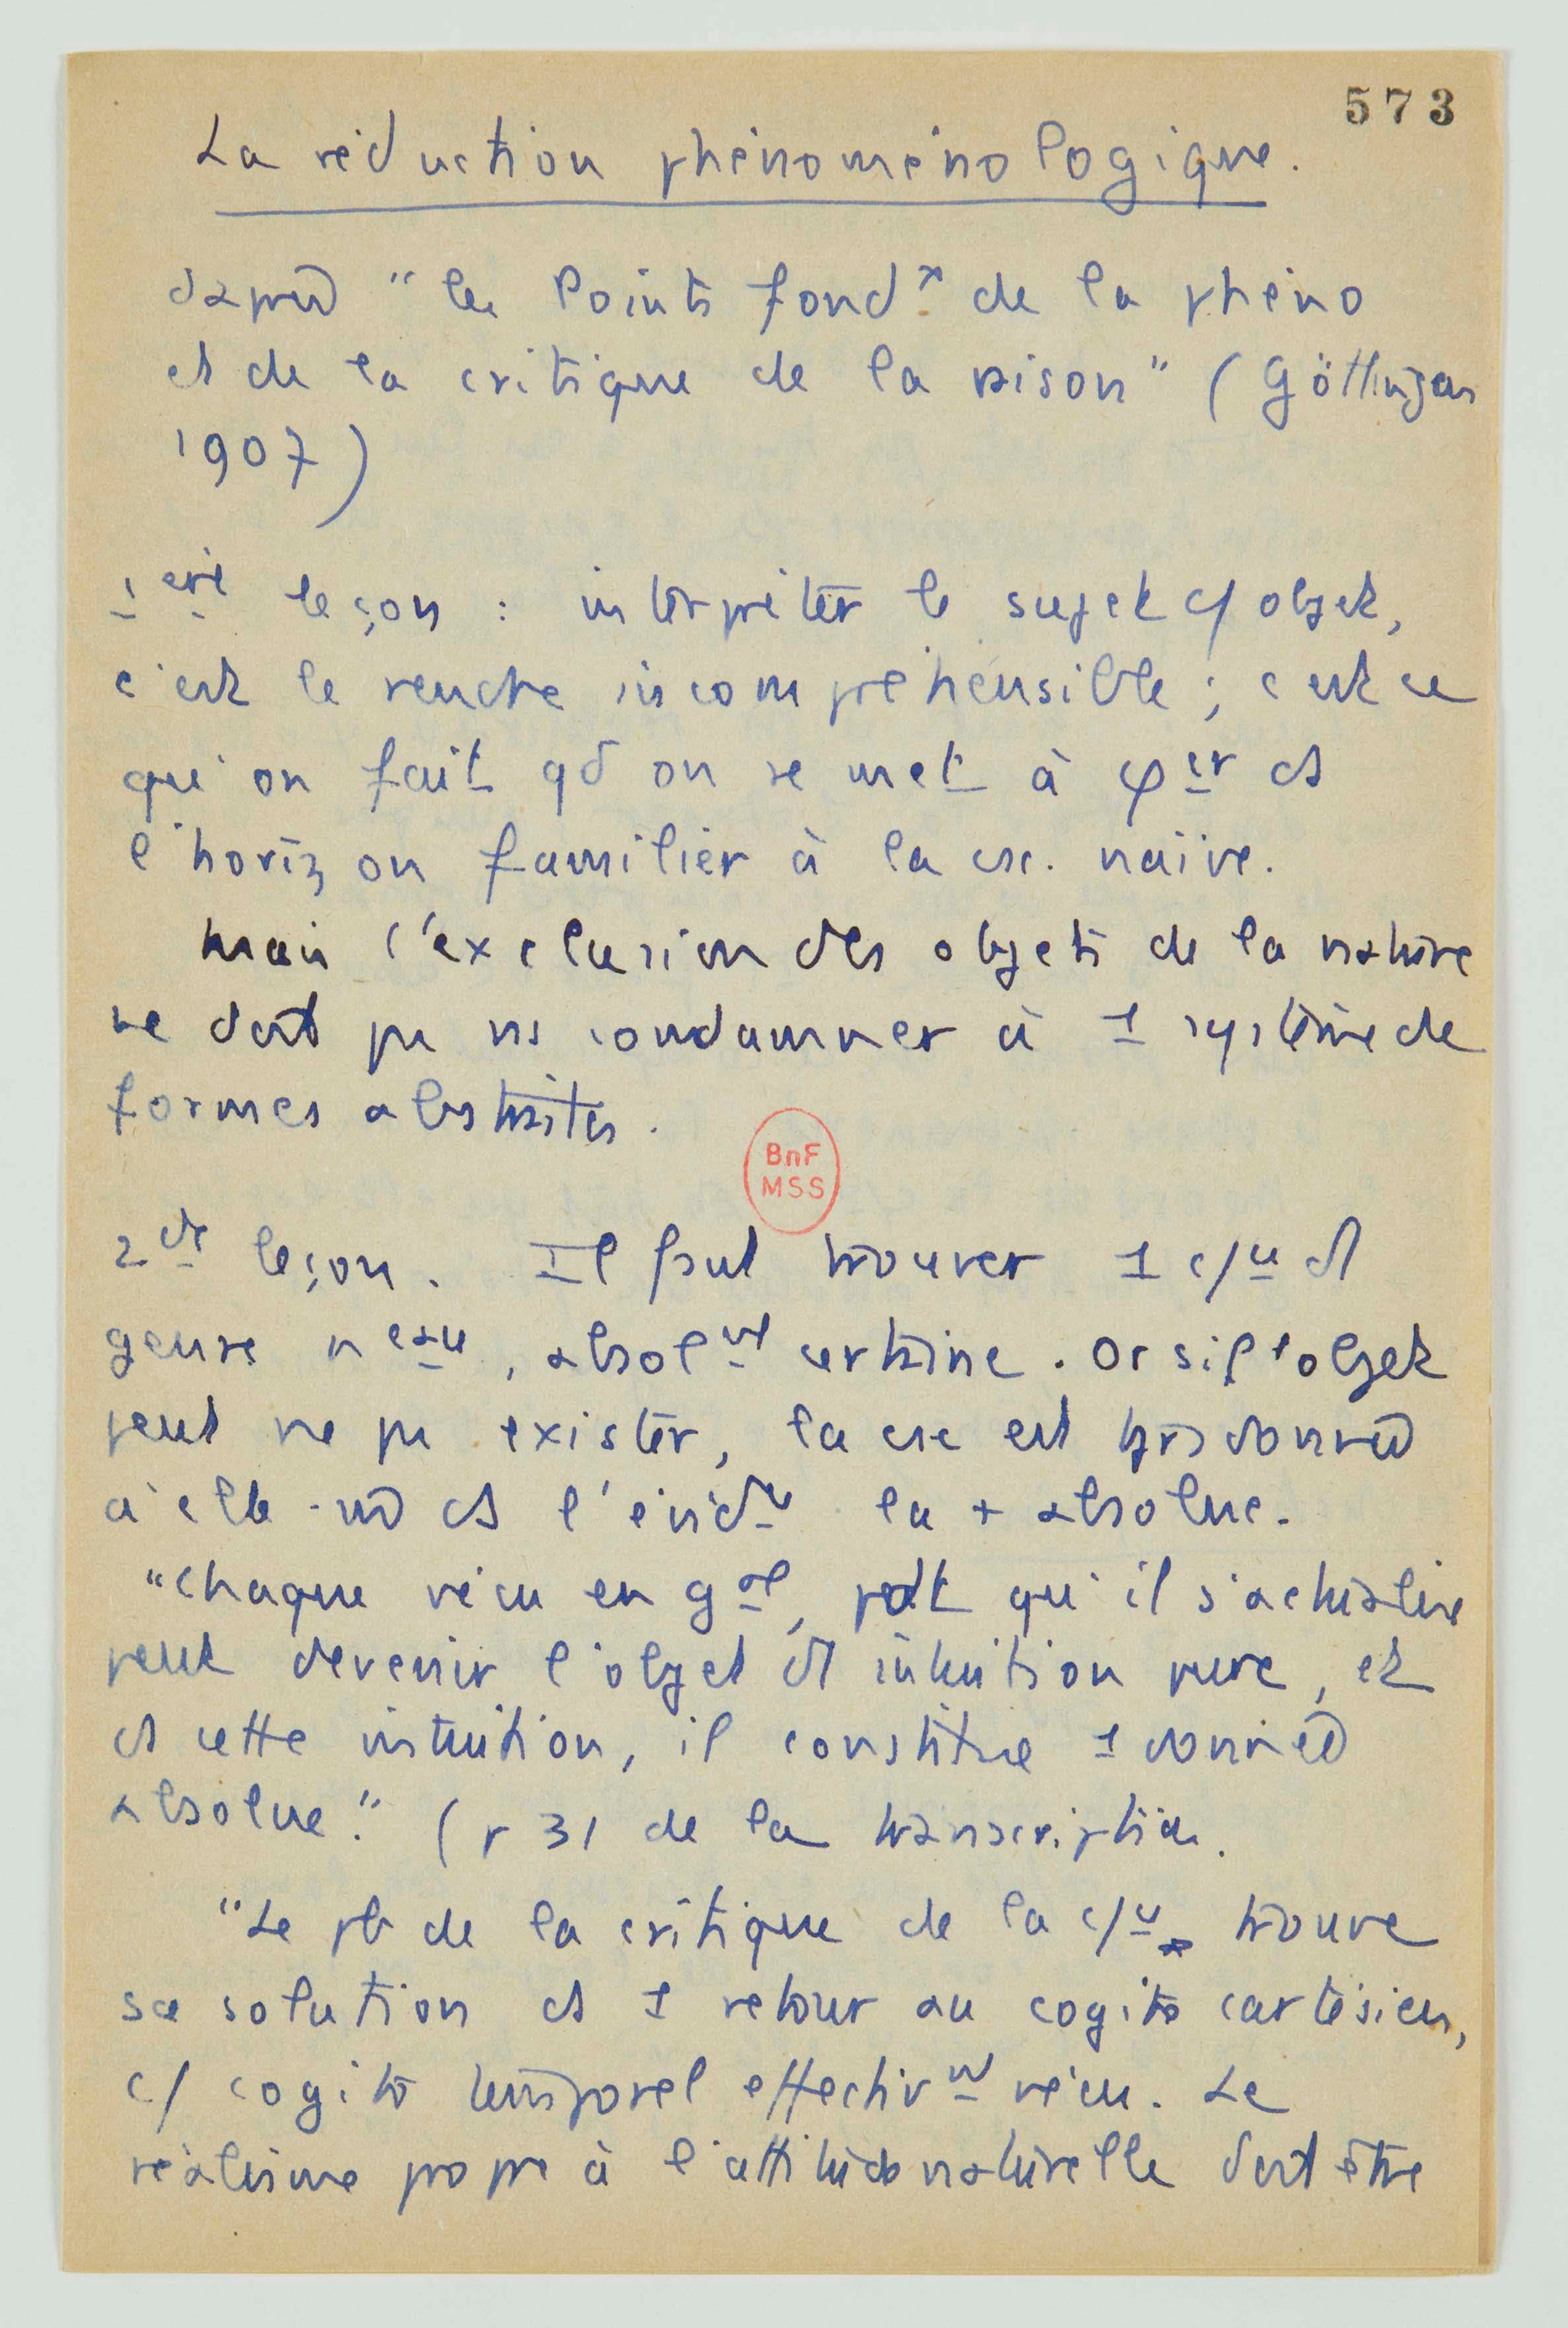 573
La réduction phénoménologique.
"les Points fondx de la phéno
et de la critique de la raison" (Göttingen
1907)
1ère leçon : interpréter le sujet c/ objet,
c'est le rendre incompréhensible ; c'est ce
qu'on fait qd on se met à φer ds
l'horizon familier à la csc. naïive.
Mais l'exclusion des objets de la nature
ne doit pas ns condamner à 1 système de
formes abstraites.
BnF
MSS
2de leçon. Il faut trouver 1 c/ce d'1
genre neau, absolmt certaine. Or si l'objet
peut ne pas exister, la csc est tjrs donnée
à elle-m̂ ds l'évidce la + absolue.
"Chaque vécu en gal, pdt qu'il s'actualise
peut devenir l'objet d'1 intuition pure, et
ds cette intuition, il constitue 1 donnée
absolue." (p 31 de la transcription.
"Le pb de la critique de la c/ce trouve
sa solution ds 1 retour au cogito cartésien,
c/ cogito temporel effectivmt vécu. Le
réalisme propre à l'attitude naturelle doit être